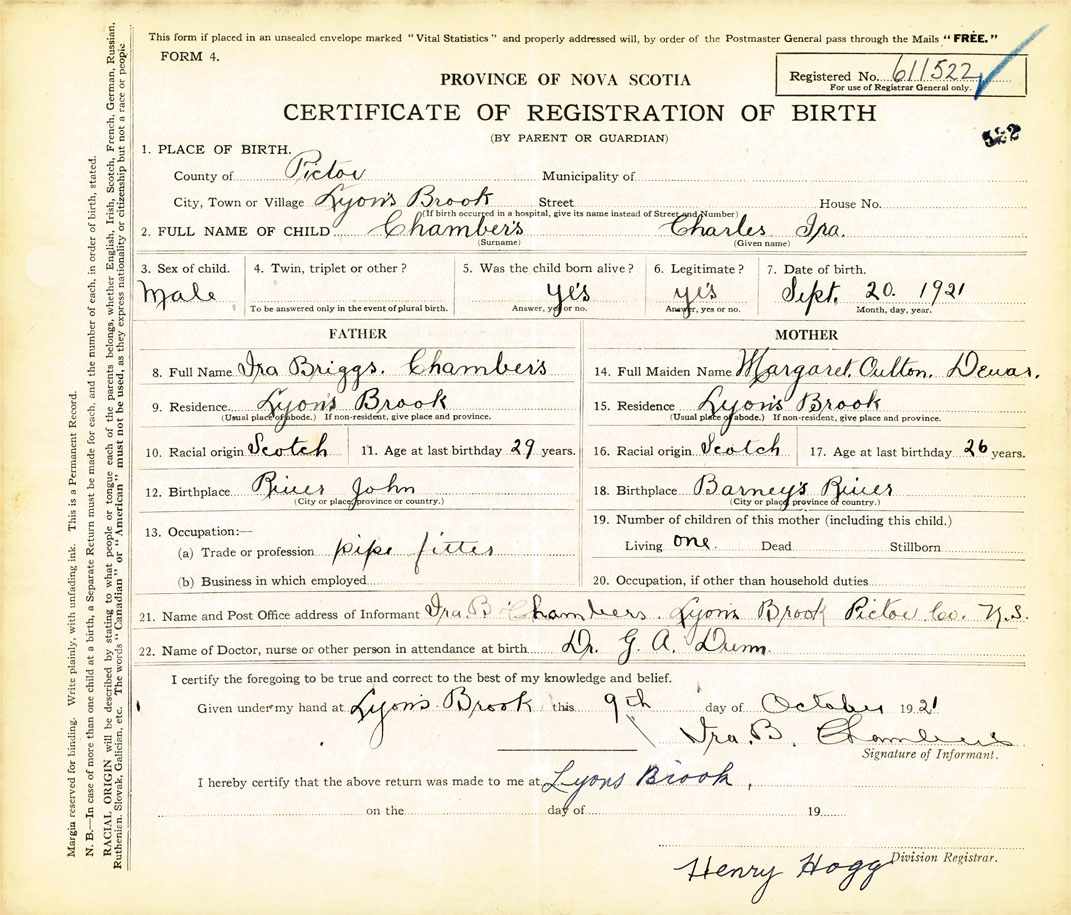 This form if placed in an unsealed envelope marked "Vital Statistics" and properly addressed will, by order of the Postmaster General pass through the Mails "FREE."
FORM 4.
Registered No. 611522
For use of Registrar General only.
PROVINCE OF NOVA SCOTIA
CERTIFICATE OF REGISTRATION OF BIRTH
(BY PARENT OR GUARDIAN)
522
1. PLACE OF BIRTH.
County of Pictou Municipality of
City, Town or Village Lyon's Brook Street House No.
(If birth occurred in a hospital, give its name instead of Street and Number)
2. FULL NAME OF CHILD Chambers Charles Ira.
(Surname) (Given name)
3. Sex of child. 4. Twin, triplet or other? 5. Was the child born alive? 6. Legitimate? 7. Date of birth.
Male yes yes Sept. 20. 1921
To be answered only in the event of plural birth. Answer, yes or no. Answer, yes or no. Month, day, year.
FATHER
8. Full Name Ira Briggs. Chambers
9. Residence Lyon's Brook
(Usual place of abode.) If non-resident, give place and province.
10. Racial origin Scotch 11. Age at last birthday 29 years.
12. Birthplace River John
(City or place, province or country.)
13. Occupation:—
(a) Trade or profession pipe fitter
(b) Business in which employed
MOTHER
14. Full Maiden Name Margaret. Oulton. Dewar.
15. Residence Lyon's Brook
(Usual place of abode.) If non-resident, give place and province.
16. Racial origin Scotch 17. Age at last birthday 26 years.
18. Birthplace Barney's River
(City or place, province or country.)
19. Number of children of this mother (including this child.)
Living one. Dead Stillborn
20. Occupation, if other than household duties
21. Name and Post Office address of Informant Ira. B Chambers. Lyon's Brook Pictou Co. N.S.
22. Name of Doctor, nurse or other person in attendance at birth Dr. G. A. Dunn.
I certify the foregoing to be true and correct to the best of my knowledge and belief.
Given under my hand at Lyon's Brook this 9th day of October 1921
Ira. B. Chambers
Signature of Informant.
I hereby certify that the above return was made to me at Lyons Brook,
on the day of 19
Henry Hogg
Division Registrar.
Margin reserved for binding. Write plainly, with unfading ink. This is a Permanent Record.
N. B.—In case of more than one child at a birth, a Separate Return must be made for each, and the number of each, in order of birth, stated.
RACIAL ORIGIN will be described by stating to what people or tongue each of the parents belongs, whether English, Irish, Scotch, French, German, Russian,
Ruthenian, Slovak, Galician, etc. The words "Canadian" or "American" must not be used, as they express nationality or citizenship but not a race or people